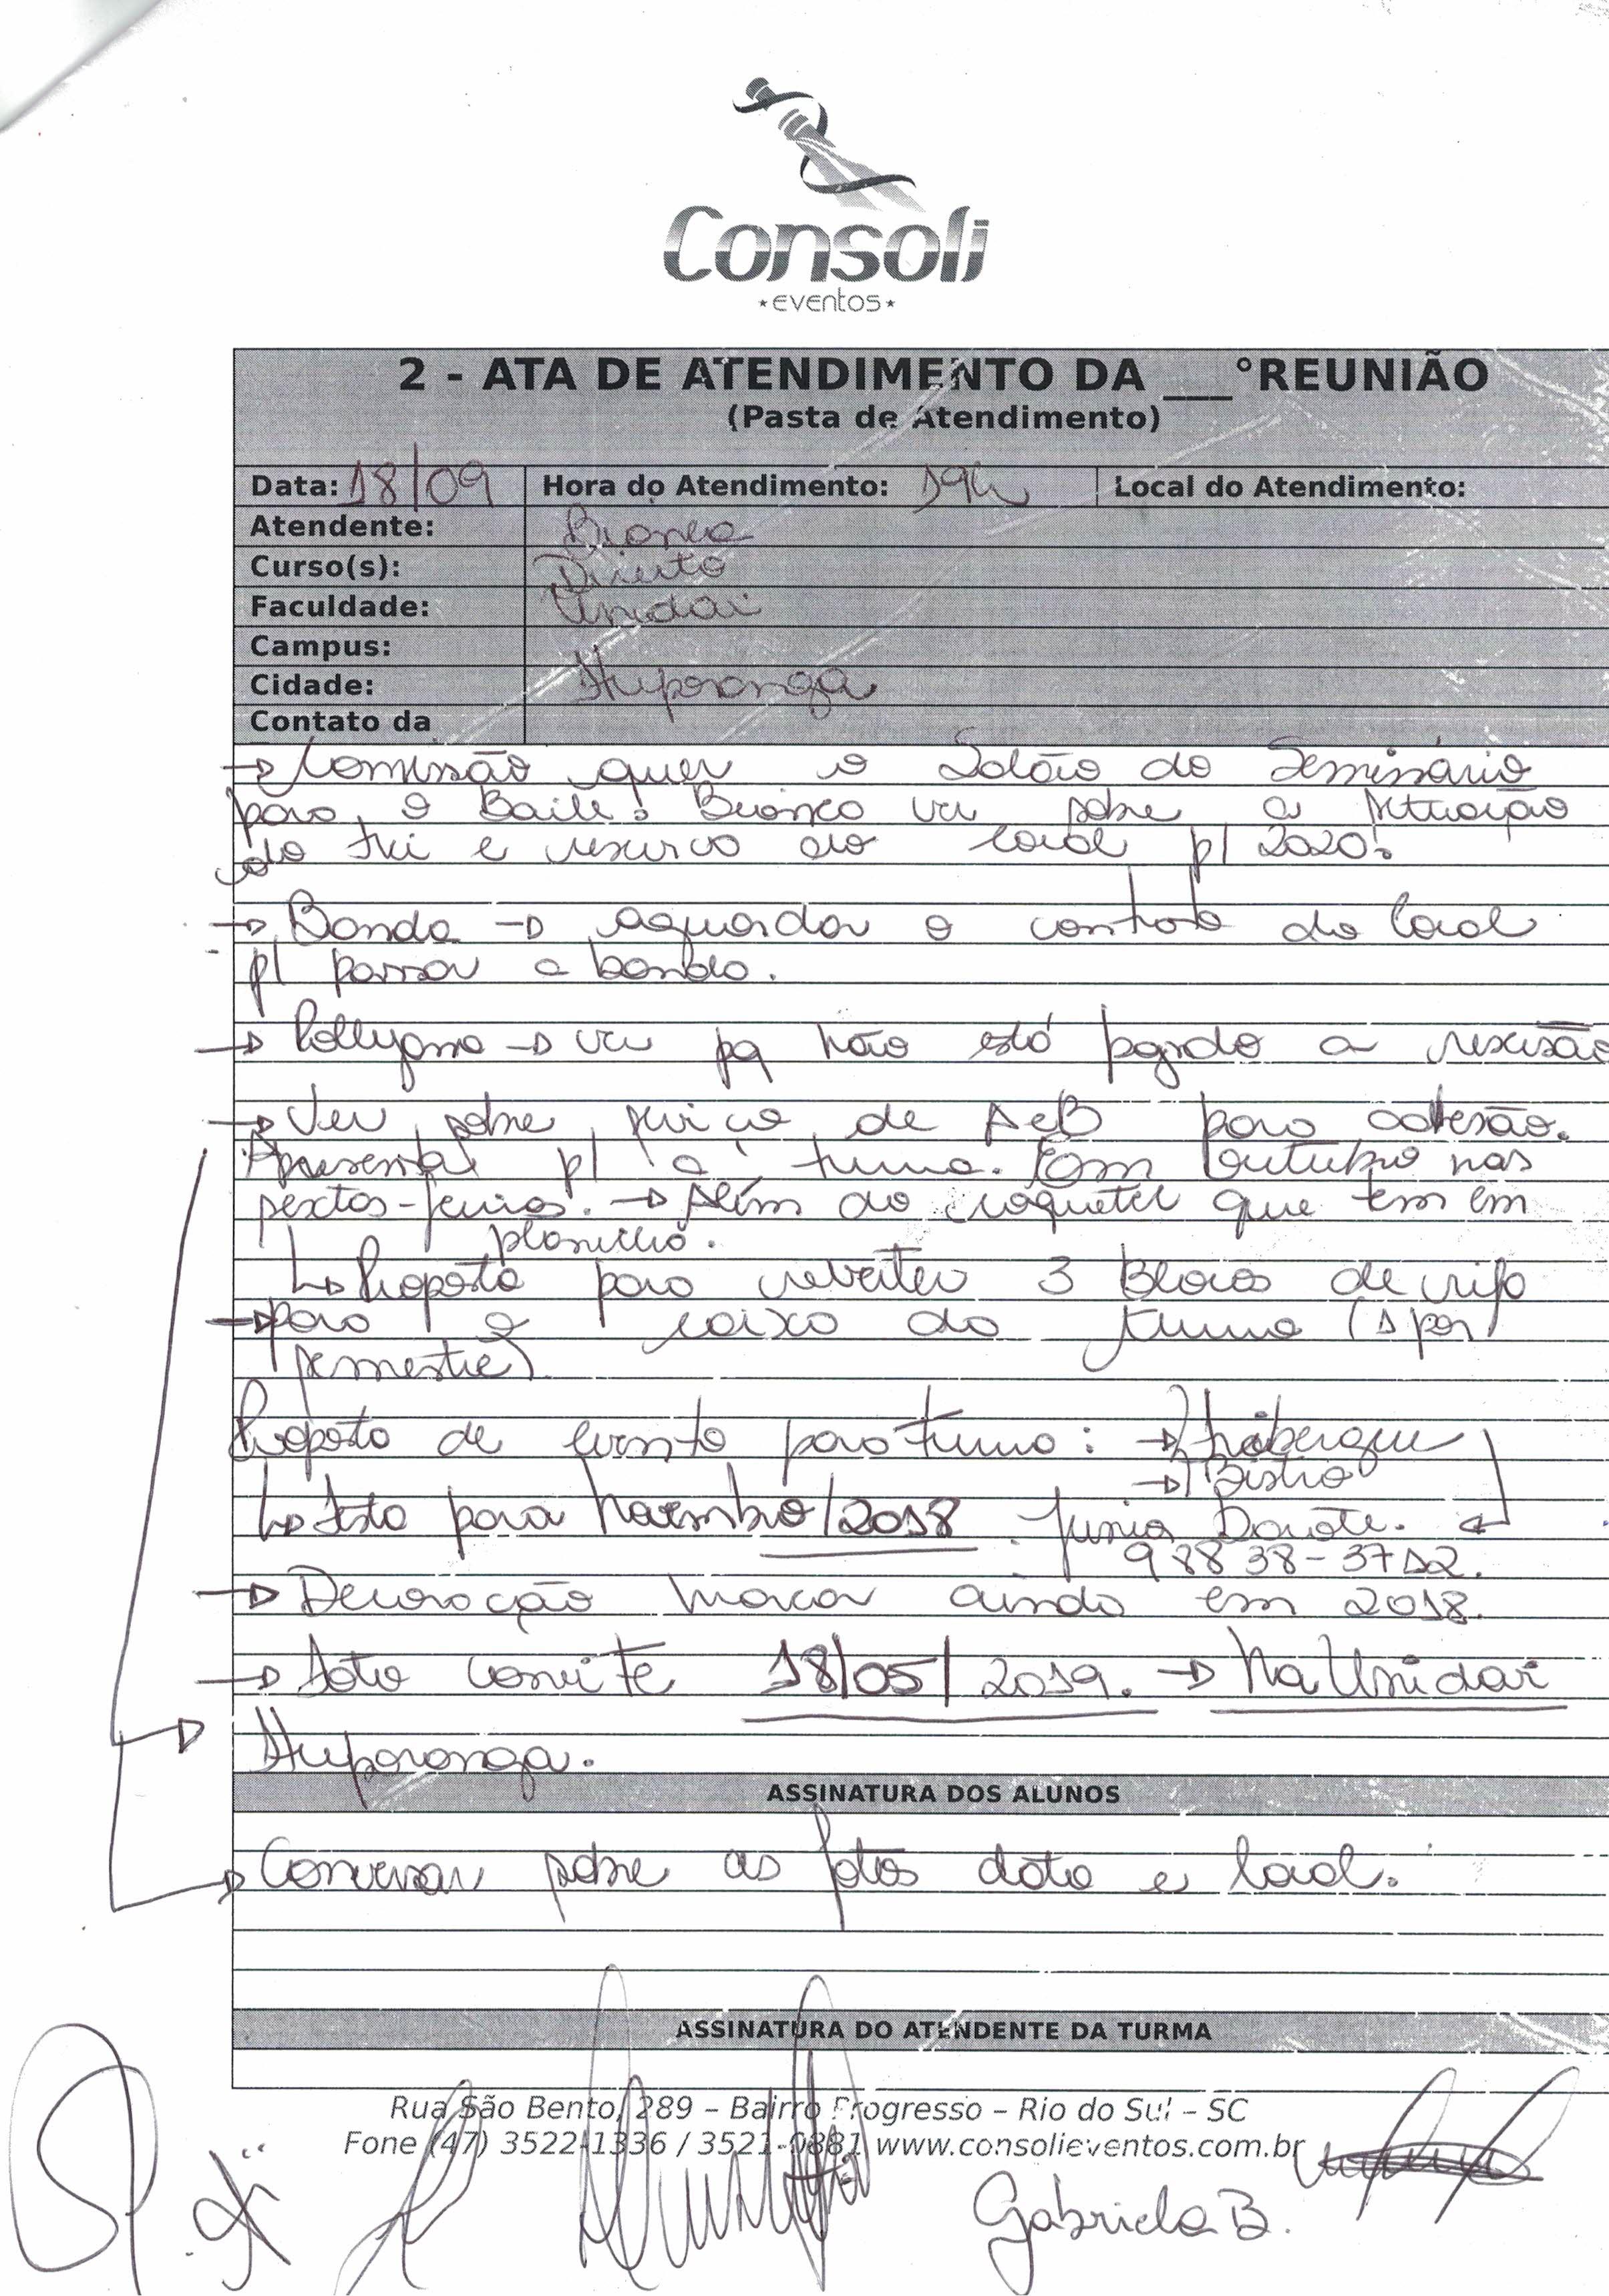 Consoli
★eventos★
2 - ATA DE ATENDIMENTO DA ___°REUNIÃO
(Pasta de Atendimento)
Data: 18/09 Hora do Atendimento: 19h Local do Atendimento:
Atendente: Bianca
Curso(s): Direito
Faculdade: Unidavi
Campus:
Cidade: Ituporanga
Contato da
→ Comissão quer o Salão do Seminário
para o Baile! Bianca ver sobre a situação
do e reserva do local p/ 2020!
→ Banda → aguardar o contrato do local
p/ passar a banda.
→ Pollyana → ver pq não está pagando a rescisão
→ Ver sobre serviço de AeB para adesão.
Apresentar p/ a turma. Em outubro nas
sextas-feiras. → Além do coquetel que tem em
planilha.
↳ Proposta para reverter 3 Blocos de rifa
→ para o caixa da turma (1 por
semestre)
Proposta de evento para turma: →
→ Bistro
↳ Festa para Novembro/2018. Junia
98838-3712.
→ Decoração marcar ainda em 2018.
→ Foto convite 18/05/2019. → Na Unidavi
Ituporanga.
ASSINATURA DOS ALUNOS
Conversar sobre as fotos data e local.
ASSINATURA DO ATENDENTE DA TURMA
Rua São Bento, 289 – Bairro Progresso – Rio do Sul – SC
Fone (47) 3522-1336 / 3521-0881 www.consolieventos.com.br
Gabriela B.